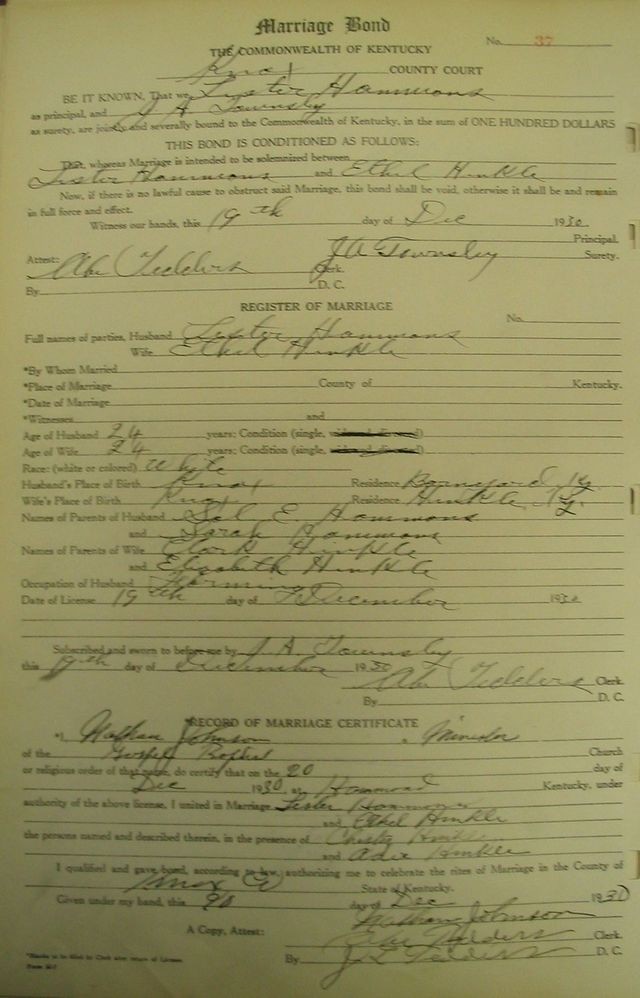 Marriage Bond
No. 37
THE COMMONWEALTH OF KENTUCKY
Knox COUNTY COURT
BE IT KNOWN, That we, Lester Hammons
as principal, and J A Townsley
as surety, are jointly and severally bound to the Commonwealth of Kentucky, in the sum of ONE HUNDRED DOLLARS
THIS BOND IS CONDITIONED AS FOLLOWS:
That, whereas Marriage is intended to be solemnized between
Lester Hammons and Ethel Hinkle
Now, if there is no lawful cause to obstruct said Marriage, this bond shall be void, otherwise it shall be and remain
in full force and effect.
Witness our hands, this 19th day of Dec 1930
Principal.
Attest: J A Townsley Surety.
Abe Tedders Clerk.
By D. C.
REGISTER OF MARRIAGE
No.
Full names of parties, Husband Lester Hammons
Wife Ethel Hinkle
*By Whom Married
*Place of Marriage County of Kentucky.
*Date of Marriage
*Witnesses and
Age of Husband 24 years; Condition (single, widowed, divorced)
Age of Wife 24 years; Condition (single, widowed, divorced)
Race: (white or colored) White
Husband's Place of Birth Knox Residence Ky
Wife's Place of Birth Knox Residence Hinkle, Ky
Names of Parents of Husband Sol E Hammons
and Sarah Hammons
Names of Parents of Wife Clark Hinkle
and Elizabeth Hinkle
Occupation of Husband Farming
Date of License 19th day of December 1930
Subscribed and sworn to before me by J. A. Townsley
this 19th day of December 1930
Abe Tedders Clerk.
By D. C.
RECORD OF MARRIAGE CERTIFICATE
*I, Nathan Johnson a Minister
of the Gospel Baptist Church
or religious order of that name, do certify that on the 20 day of
Dec 1930, at Hammond Kentucky, under
authority of the above license, I united in Marriage Lester Hammons
and Ethel Hinkle
the persons named and described therein, in the presence of Chester Hinkle
and Hinkle
I qualified and gave bond, according to law, authorizing me to celebrate the rites of Marriage in the County of
Knox Co State of Kentucky.
Given under my hand, this 20 day of Dec 1930
Nathan Johnson
A Copy, Attest: Abe Tedders Clerk.
By J L Tedders D. C.
*Blanks to be filled by Clerk after return of License.